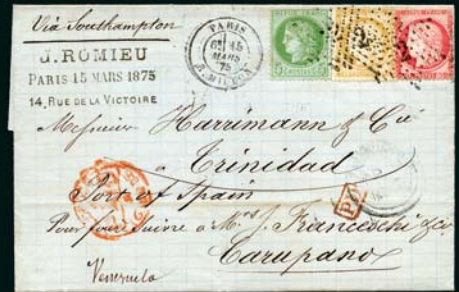 Via Southampton
J. ROMIEU
PARIS 15 MARS 1875
14, RUE DE LA VICTOIRE
PARIS
MARS
75
Messieurs Harrimann & Cie
à
Trinidad
Port of Spain
Pour faire suivre à Mrs J. Franceschi & Co
Carupano
Venezuela